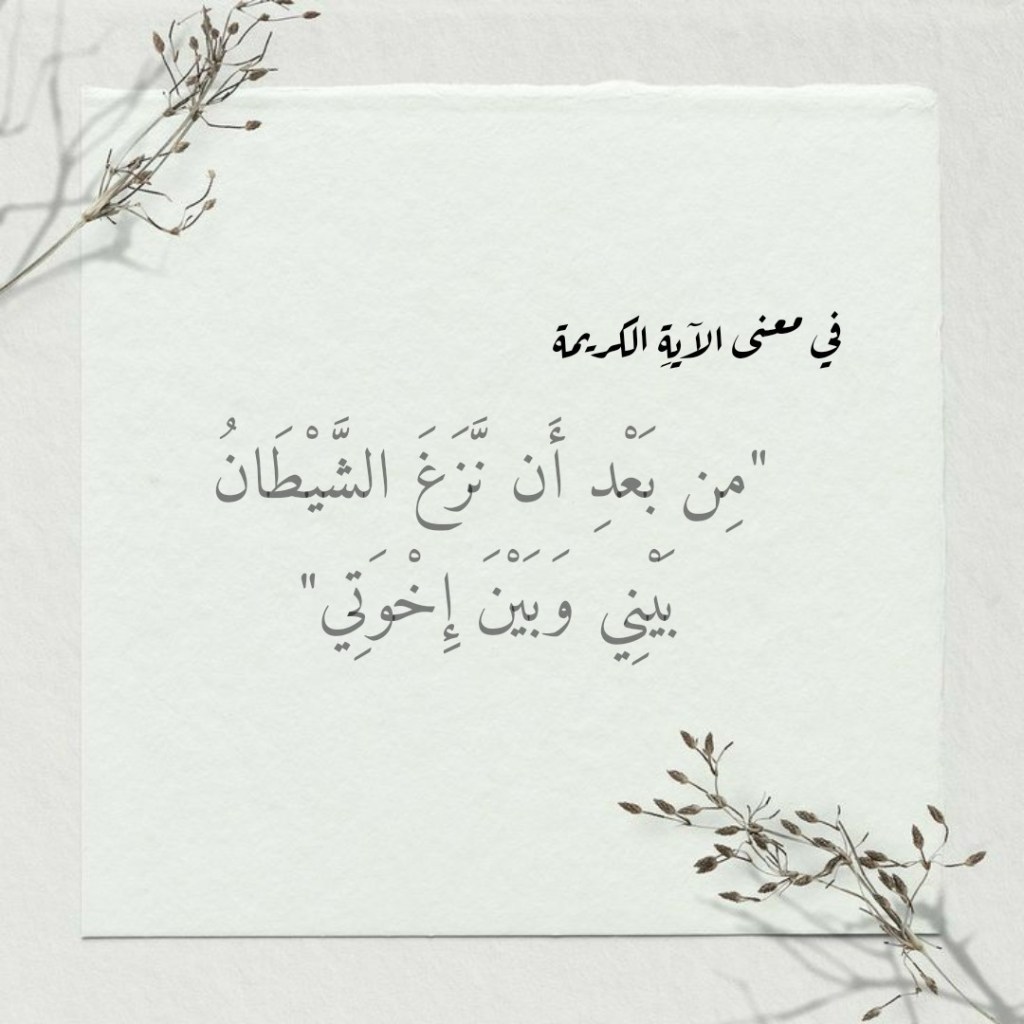 في معنى الآيةِ الكريمة
"مِن بَعْدِ أَن نَّزَغَ الشَّيْطَانُ
بَيْنِي وَبَيْنَ إِخْوَتِي"